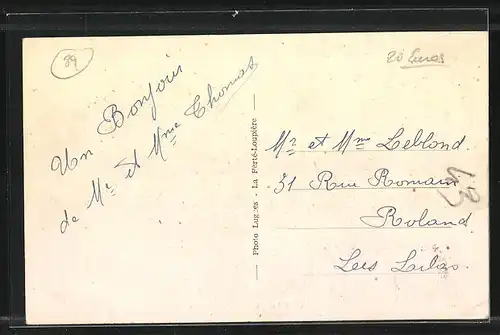 89
20 Euros
Un Bonjour
de Mr et Mme Thomas
Photo Lugnes - La Ferté-Loupière
Mr et Mme Leblond
31 Rue Romain
Roland
Les Lilas.